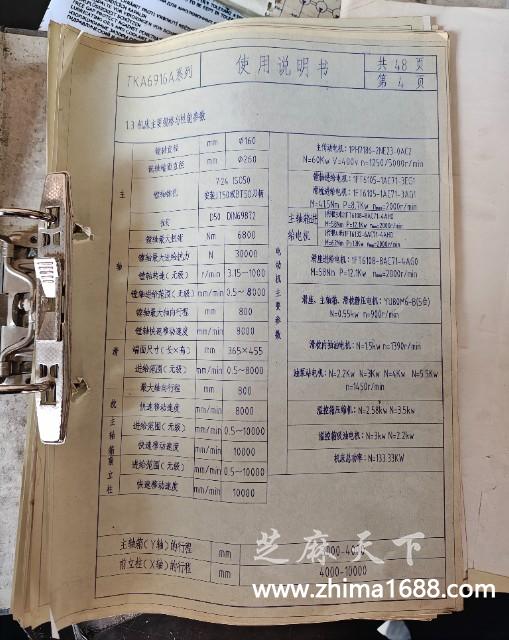 TKA6916A系列
使用说明书
共 48 页
第 4 页
1.3 机床主要规格与性能参数
镗轴直径 mm φ160
铣轴端面直径 mm φ260
主轴
镗轴锥孔 7:24 ISO50
拉钉 D50 DIN69872
镗轴最大扭矩 Nm 6800
镗轴最大进给抗力 N 30000
镗轴转速(无级) r/min 3.15~1000
镗轴进给范围(无级) mm/min 0.5~8000
镗轴最大轴向行程 mm 800
镗轴快速移动速度 mm/min 8000
滑枕
端面尺寸(长×高) mm 365×455
进给范围(无级) mm/min 0.5~8000
最大轴向行程 mm 800
快速移动速度 mm/min 8000
主轴箱
进给范围(无级) mm/min 0.5~10000
快速移动速度 mm/min 10000
立柱
进给范围(无级) mm/min 0.5~10000
快速移动速度 mm/min 10000
主轴箱(Y轴)的行程 mm
前立柱(X轴)的行程 mm 4000-10000
电动机主要参数
主传动电机:1PH7186-2NE23-0AC2
N=60Kw V=400v n=1250/5000r/min
镗轴进给电机:1FT6105-1AC71-3EG1
滑枕进给电机:1FT6105-1AC71-3AG1
主轴箱进给电机
滑座进给电机:1FT6108-8AC71-4AG0
M=58Nm P=12.1Kw nmax=2000r/min
滑座、主轴箱、滑枕静压电机:YU80M6-B(5台)
N=0.55kw n=900r/min
N=1.5kw n=1390r/min
油泵站电机:N=2.2Kw N=3Kw N=4Kw N=5.5Kw
n=1450r/min
温控箱压缩机:N=2.58kw N=3.5kw
温控箱吸油电机:N=3kw N=2.2kw
机床总功率:N=133.33KW
芝麻天下
www.zhima1688.com